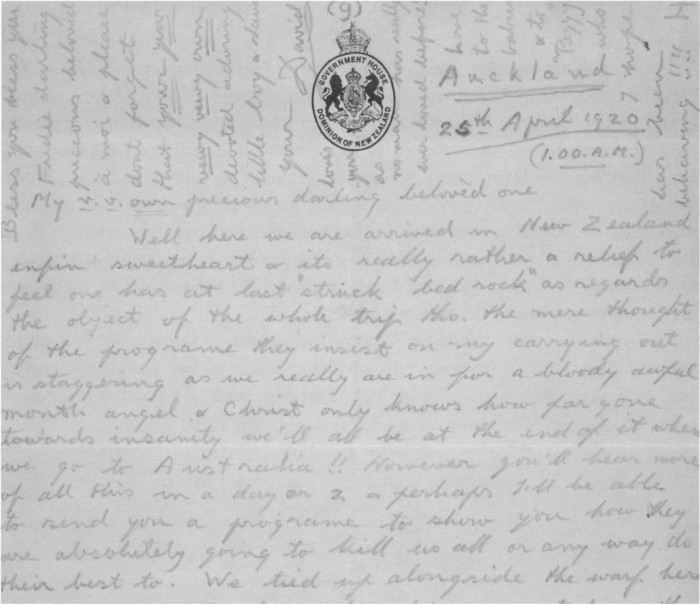 (9)
GOVERNMENT HOUSE
DOMINION OF NEW ZEALAND
Auckland
25th April 1920
(1.00. A.M.)
My v. v. own precious darling beloved one
Well here we are arrived in New Zealand
enfin sweetheart & its really rather a relief to
feel one has at last "struck bed rock" as regards
the object of the whole trip tho. the mere thought
of the programe they insist on my carrying out
is staggering as we really are in for a bloody awful
month angel & Christ only knows how far gone
towards insanity we'll all be at the end of it when
we go to Australia!! However you'll hear more
of all this in a day or 2 & perhaps I'll be able
to send you a programe to show you how they
are absolutely going to kill us all or any way do
their best to. We tied up alongside the warf here
Bless you bless you
Fredie darling
precious beloved
à moi & please
dont forget
that your your
very very own
devoted adoring
little boy &
your David
love
to the
babies
& to
"Peggy"
who
I hope
has been
behaving!!!